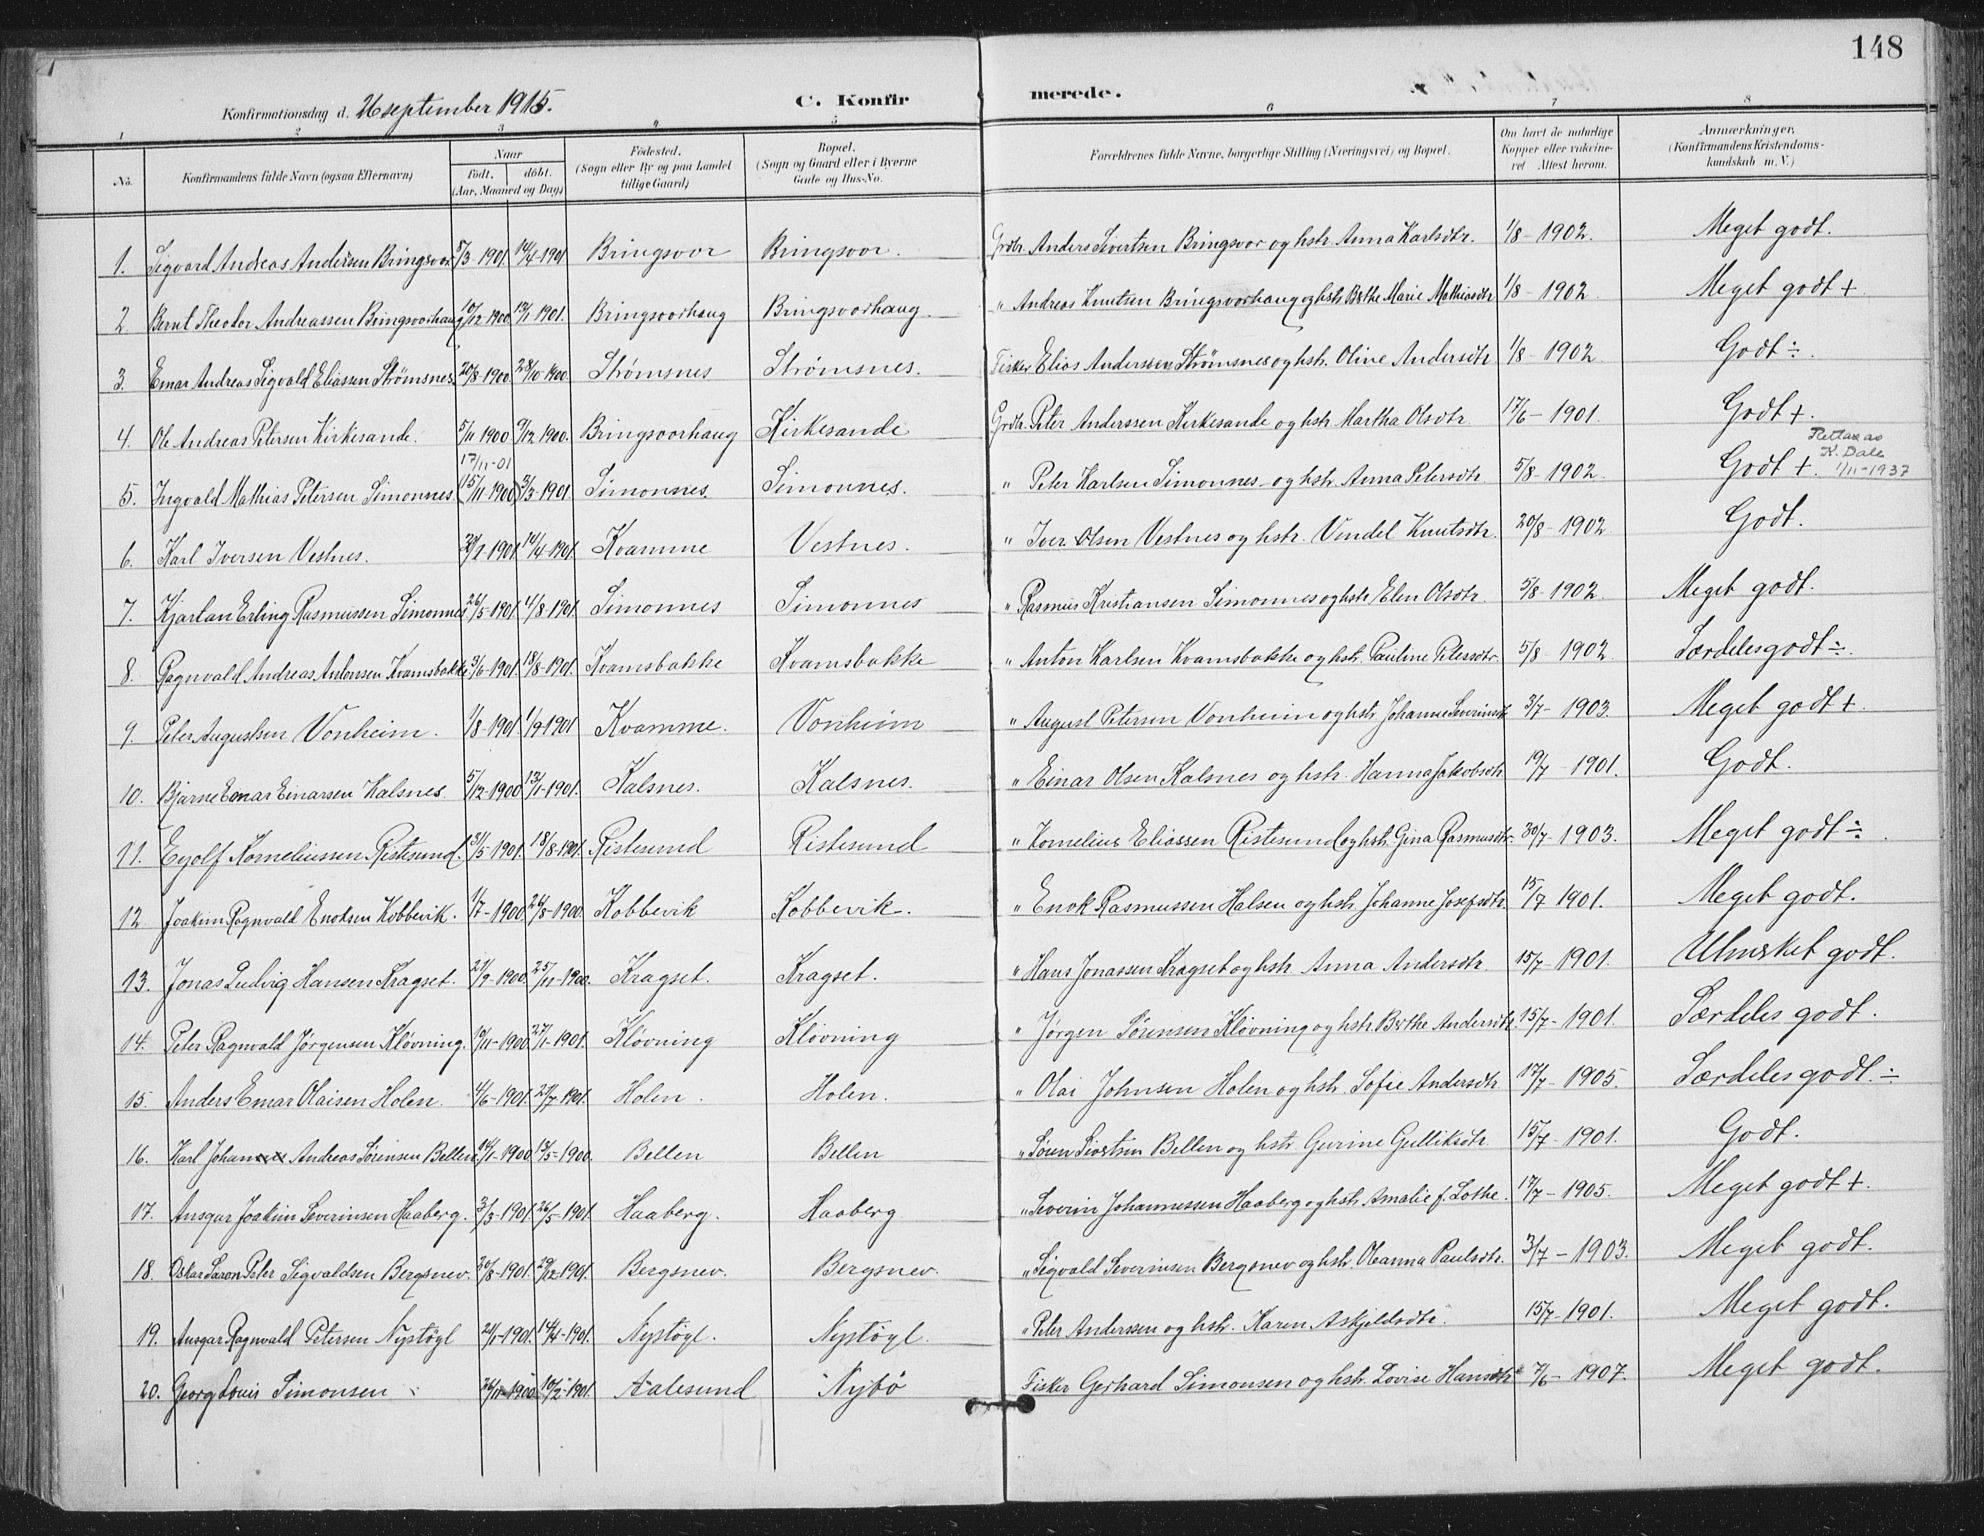 148
Konfirmationsdag d. 26 september 1915. C. Konfirmerede.
1 2 3 4 5 6 7 8
No. Konfirmandens fulde Navn (ogsaa Efternavn) Naar født. døbt. (Aar, Maaned og Dag) Fødested. (Sogn eller By og paa Landet tillige Gaard) Bopæl. (Sogn og Gaard eller i Byerne Gade og Hus-No. Forældrenes fulde Navne, borgerlige Stilling (Næringsvei) og Bopæl. Om havt de naturlige Kopper eller vakcineret Attest herom. Anmærkninger. (Konfirmandens Kristendomskundskab m. V.)
1. Sigvard Andreas Andersen Bringsvor 5/3-1901 14/4-1901 Bringsvor Bringsvor. Grdbr. Anders Sivertsen Bringsvor og hstr. Anna Karlsdtr. 1/8-1902. Meget godt.
2 Bernt Theodor Andreassen Bringsvorhaug 10/12-1900 13/1-1901. Bringsvorhaug Bringsvorhaug. " Andreas Knutsen Bringsvorhaug og hstr Berthe Marie Mathiasdtr 1/8-1902. Meget godt +
3. Einar Andreas Sigvald Eliassen Strømsnes. 20/8-1900. 28/10-1900. Strømsnes Strømsnes. Fisker Elias Anderssen Strømsnes og hstr. Oline Andersdtr 1/8-1902 Godt ÷.
4. Ole Andreas Petersen Kirkesande. 5/11 1900 9/12 1900. Bringsvorhaug Kirkesande Grdbr. Peter Anderssen Kirkesande og hstr Martha Olsdtr. 17/6-1901. Godt +.
17/11-01
Rettax av K. Dale 1/11-1937
5. Ingvald Mathias Petersen Simonnes. (15/11 1900) 3/3-1901 Simonnes. Simonnes. " Peter Karlsen Simonnes og hstr. Anna Petersdtr. 5/8-1902. Godt +.
6. Karl Iversen Vestnes. 1901. 14/4-1901. Kvamme Vestnes. " Iver Olsen Vestnes og hstr. Vendel Knutsdtr. 20/8-1902. Godt.
7. Kjartan Erling Rasmussen Simonnes 26/5-1901. 11/8-1901. Simonnes Simonnes " Rasmus Kristiansen Simonnes og hstr Elen Olsdtr. 5/8-1902. Meget godt.
8. Ragnvald Andreas Antonsen Kvamsbakke 3/6-1901. 18/8-1901. Kvamsbakke Kvamsbakke " Anton Karlsen Kvamsbakke og hstr. Pauline Petersdtr. 5/8-1902. Særdeles godt ÷.
9. Peter Augustsen Vonheim. 1/8-1901. 1/9-1901 Kvamme. Vonheim " August Petersen Vonheim og hstr. Johanne Severinsdtr 3/7-1903. Meget godt +.
10. Bjarne Einar Einarsen Kalsnes. 5/12-1900 13/1-1901. Kalsnes. Kalsnes. " Einar Olsen Kalsnes og hstr. Hanna Jakobsdtr. 19/7-1901. Godt.
11. Eyolf Korneliussen Ristesund. 31/5-1901. 18/8-1901. Ristesund Ristesund " Kornelius Eliassen Ristesund og hstr. Gina Rasmusdtr. 30/7-1903. Meget godt ÷
12 Joakim Ragnvald Enoksen Kobbevik. 1/7-1900 26/8-1900. Kobbevik Kobbevik. " Enok Rasmussen Halsen og hstr. Johanne Josefsdtr. 15/7 1901. Meget godt.
13. Jonas Ludvig Hansen Kragset. 21/9-1900. 25/11-1900. Kragset. Kragset. " Hans Jonassen Kragset og hstr. Anna Andersdtr. 15/7-1901. Utmerket godt.
14. Peter Ragnvald Jørgensen Kløvning. 10/11-1900. 27/1-1901. Kløvning Kløvning " Jørgen Sørensen Kløvning og hstr. Berthe Andersdtr. 15/7-1901. Særdeles godt.
15. Anders Einar Olaisen Holen. 4/6-1901. 21/7-1901. Holen. Holen. " Olai Johnsen Holen og hstr. Sofie Andersdtr. 17/7-1905. Særdeles godt. ÷
16. Karl Johan Andreas Sørensen Bellen. 14/1-1900. 13/5-1900. Bellen Bellen " Søren Sivertsen Bellen og hstr. Gurine Gulliksdtr. 15/7-1901. Godt.
17. Ansgar Joakim Severinsen Haaberg. 3/3-1901 26/5-1901. Haaberg. Haaberg. " Severin Johannessen Haaberg og hstr. Amalie f. Lothe. 17/7-1905. Meget godt +.
18. Oskar Saron Peter Sigvaldsen Bergsnev. 20/8-1901. 29/12-1901. Bergsnev. Bergsnev. " Sigvald Severinsen Bergsnev og hstr. Oleanna Paulsdtr. 31/7-1903. Meget godt.
19. Ansgar Ragnvald Petersen Nystøyl 21/1-1901. 14/4-1901. Nystøyl. Nystøyl. " Peter Anderssen og hstr. Karen Askjeldsdtr. 15/7-1901. Meget godt.
20. Georg Louis Simonsen 26/11-1900 10/2-1901. Aalesund Nybø Fisker Gerhard Simonsen og hstr. Lovise Hansdtr. 7/6-1907. Meget godt.